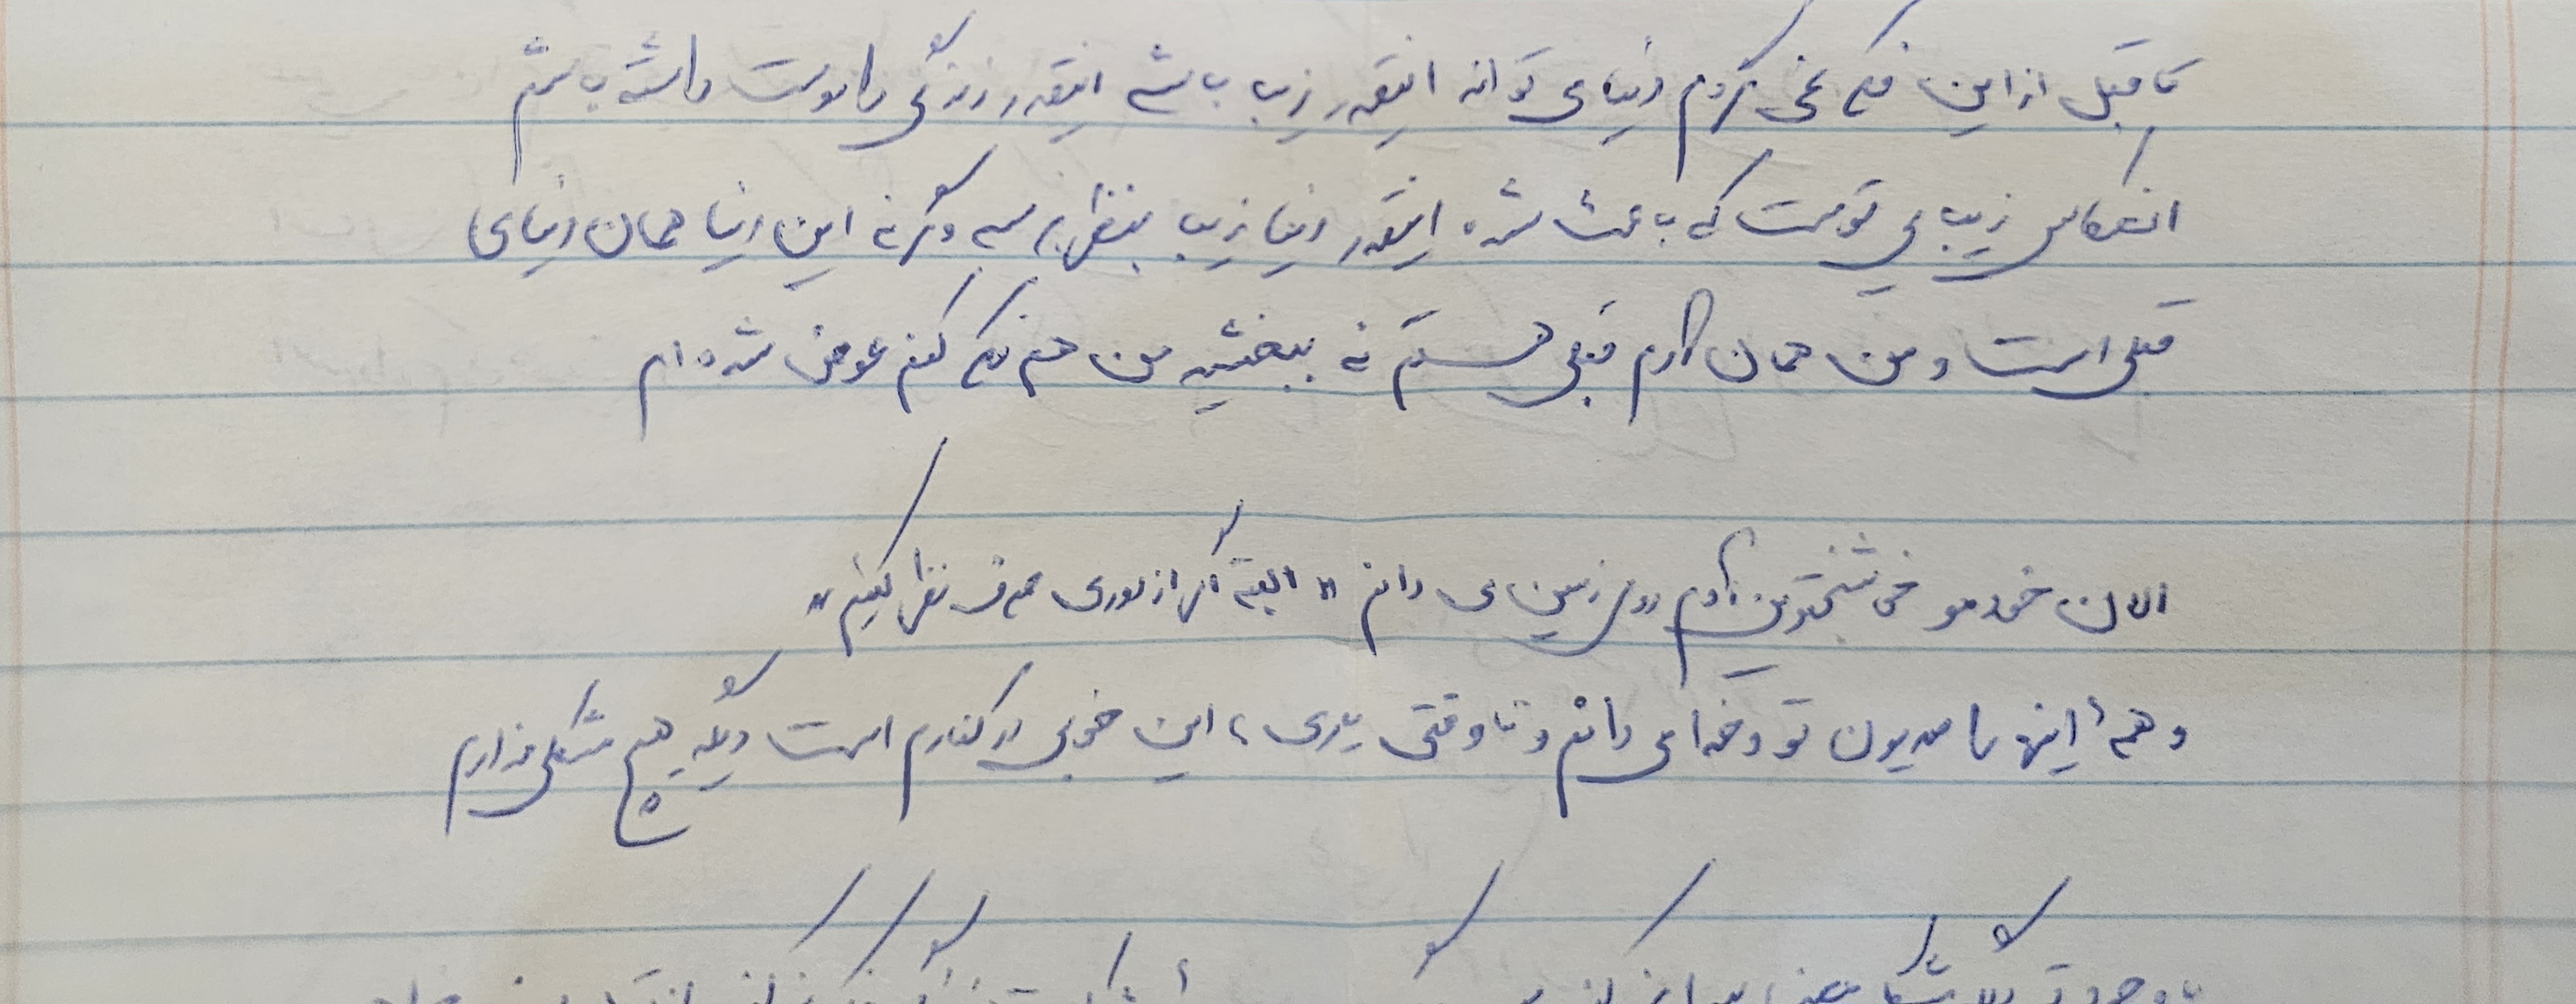 تا قبل از این فکر نمی کردم دنیا می تواند اینقدر زیبا باشه اینقدر زندگی را دوست داشته باشم
انعکاس زیبایی توست که باعث شده اینقدر دنیا زیبا بنظر برسه وگرنه این دنیا همان دنیای
قبلی است و من همان آدم قبلی هستم نه ببخشید من هم فکر کنم عوض شده ام
الان خودمو خوشبختترین آدم روی زمین می دانم "البته اگر از دوری صرف نظر کنیم"
و همهٔ اینها را مدیون تو و خدا می دانم و تا وقتی یاری به این خوبی در کنارم است دیگه هیچ مشکلی ندارم
با وجود